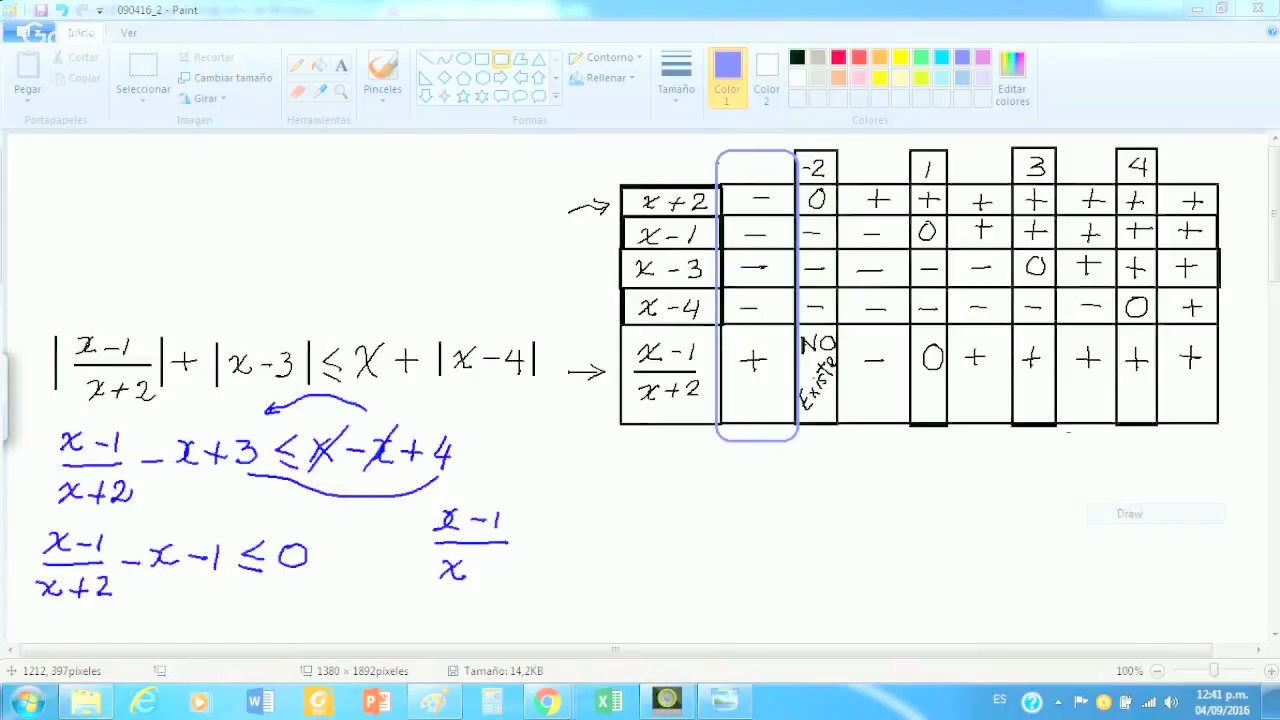 090416_2 - Paint
Inicio Ver
Cortar
Copiar
Pegar
Portapapeles
Seleccionar
Recortar
Cambiar tamaño
Girar
Imagen
A
Herramientas
Pinceles
Contorno
Rellenar
Formas
Tamaño
Color 1
Color 2
Editar colores
Colores
-2 1 3 4
x+2 − 0 + + + + + + +
x−1 − − − 0 + + + + +
x−3 − − − − − 0 + + +
x−4 − − − − − − − 0 +
(x−1)/(x+2) + NO Existe − 0 + + + + +
|(x−1)/(x+2)| + |x−3| ≤ x + |x−4|
(x−1)/(x+2) − x + 3 ≤ x − x + 4
(x−1)/(x+2) − x − 1 ≤ 0
x−1
x
Draw
1212, 397píxeles
1380 × 1892píxeles
Tamaño: 14,2KB
100%
ES
12:41 p.m.
04/09/2016